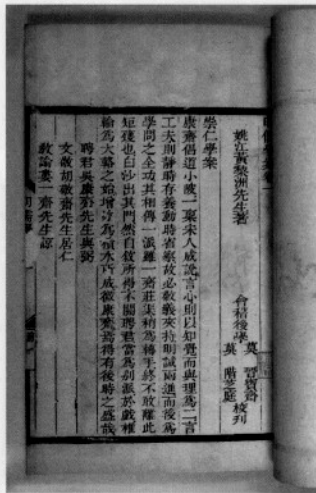 姚江黃黎洲先生著
會稽後學
莫 晋寶齋
莫 階芝庭
校刊
崇仁學案
康齋倡道小陂一稟宋人成說言心則以知覺而與理為二言
工夫則靜時存養動時省察故必敬義夾持明誠兩進而後為
學問之全功其相傳一派雖一齋莊渠稍為轉手終不敢離此
矩矱也白沙出其門然自敘所得不關聘君當為別派於戲椎
輪為大輅之始增冰為積水所成微康齋焉得有後時之盛哉
聘君吳康齋先生與弼
文敬胡敬齋先生居仁
教諭婁一齋先生諒